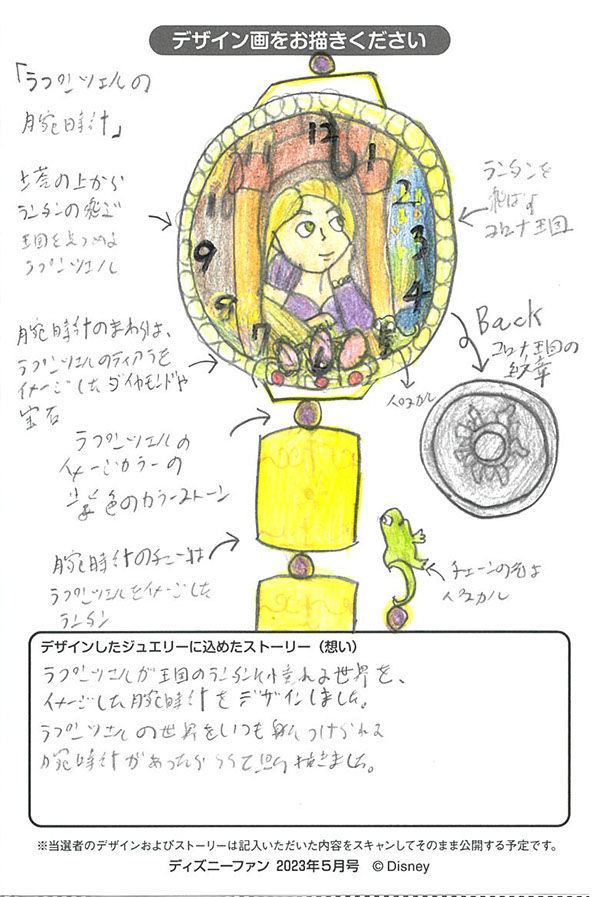 デザイン画をお描きください
「ラプンツェルの
腕時計」
塔の上から
ランタンの飛ぶ
王国を見つめる
ラプンツェル
腕時計のまわりは、
ラプンツェルのティアラを
イメージしたダイヤモンドや
宝石
ラプンツェルの
イメージカラーの
紫色のカラーストーン
腕時計のチェーンは
ラプンツェルをイメージした
ランタン
12
1
2
3
4
5
6
7
8
9
10
11
ランタンを
飛ばす
コロナ王国
Back
コロナ王国の
紋章
パスカル
チェーンの先は
パスカル
デザインしたジュエリーに込めたストーリー（想い）
ラプンツェルが王国のランタンに憧れる世界を、
イメージした腕時計をデザインしました。
ラプンツェルの世界をいつも身につけられる
腕時計があったらいいなと思い描きました。
※当選者のデザインおよびストーリーは記入いただいた内容をスキャンしてそのまま公開する予定です。
ディズニーファン 2023年5月号 ©Disney